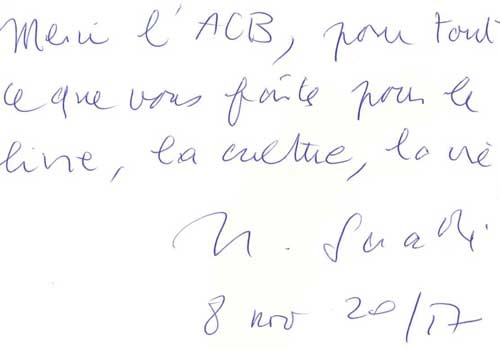 Merci l'ACB, pour tout
ce que vous faites pour le
livre, la culture, la vie
N.
8 nov 20/17